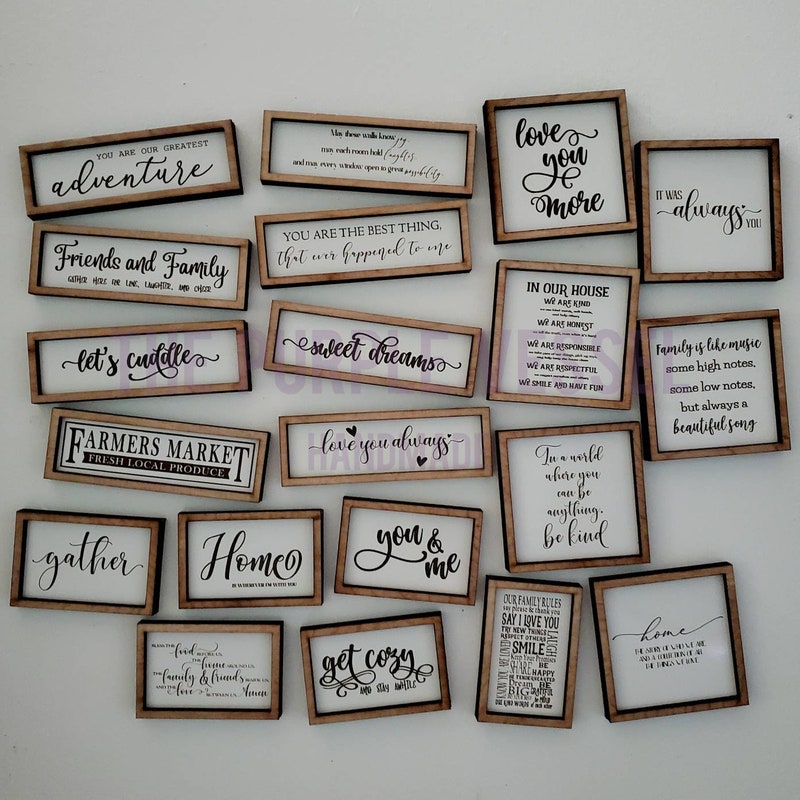 YOU ARE OUR GREATEST
adventure
May these walls know joy,
may each room hold laughter,
and may every window open to great possibility.
love
you
more
IT WAS
always
YOU
Friends and Family
GATHER HERE FOR LOVE, LAUGHTER, AND CHEER
YOU ARE THE BEST THING,
that ever happened to me
IN OUR HOUSE
WE ARE KIND
WE ARE HONEST
WE ARE RESPONSIBLE
WE ARE RESPECTFUL
WE SMILE AND HAVE FUN
Family is like music
some high notes,
some low notes,
but always a
beautiful song
let's cuddle
sweet dreams
THE PURPLE
FARMERS MARKET
FRESH LOCAL PRODUCE
love you always
HANDMADE
In a world
where you
can be
anything,
be kind
gather
Home
IS WHEREVER I'M WITH YOU
you &
me
BLESS THE food BEFORE US,
THE home AROUND US,
THE family & friends BESIDE US,
AND THE love BETWEEN US, Amen
get cozy
AND STAY AWHILE
OUR FAMILY RULES
say please & thank you
SAY I LOVE YOU
TRY NEW THINGS
RESPECT OTHERS
LAUGH
SMILE
Keep Your Promises
KNOW YOU ARE LOVED
SHARE
BE HAPPY
Dream BIG
BE GRATEFUL
USE KIND WORDS
home
THE STORY OF WHO WE ARE
AND A COLLECTION OF ALL
THE THINGS WE LOVE